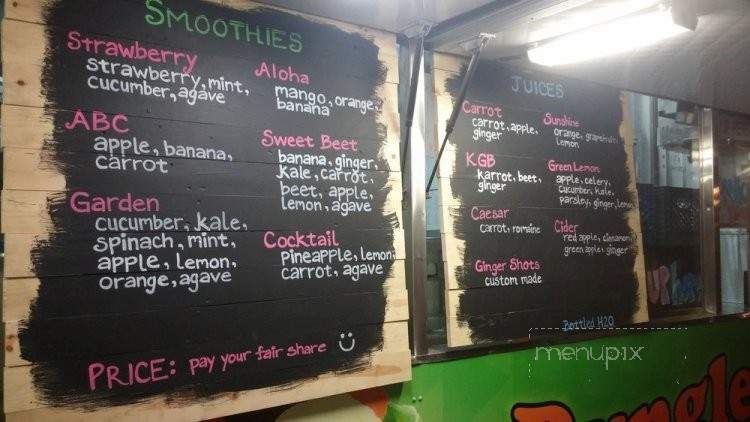 SMOOTHIES
Strawberry
strawberry, mint,
cucumber, agave
ABC
apple, banana,
carrot
Garden
cucumber, kale,
spinach, mint,
apple, lemon,
orange, agave
Aloha
mango, orange,
banana
Sweet Beet
banana, ginger,
kale, carrot,
beet, apple,
lemon, agave
Cocktail
pineapple, lemon,
carrot, agave
PRICE: pay your fair share
JUICES
Carrot
carrot, apple,
ginger
KGB
karrot, beet,
ginger
Caesar
carrot, romaine
Ginger Shots
custom made
Sunshine
orange, grapefruit,
lemon
Green Lemon
apple, celery,
cucumber, kale,
parsley, ginger, lemon
Cider
red apple, cinnamon,
green apple, ginger
Bottled H2O
menupix